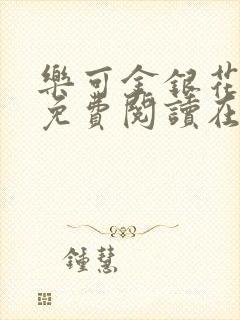 樂可金銀花
免費閱讀在
鍾慧